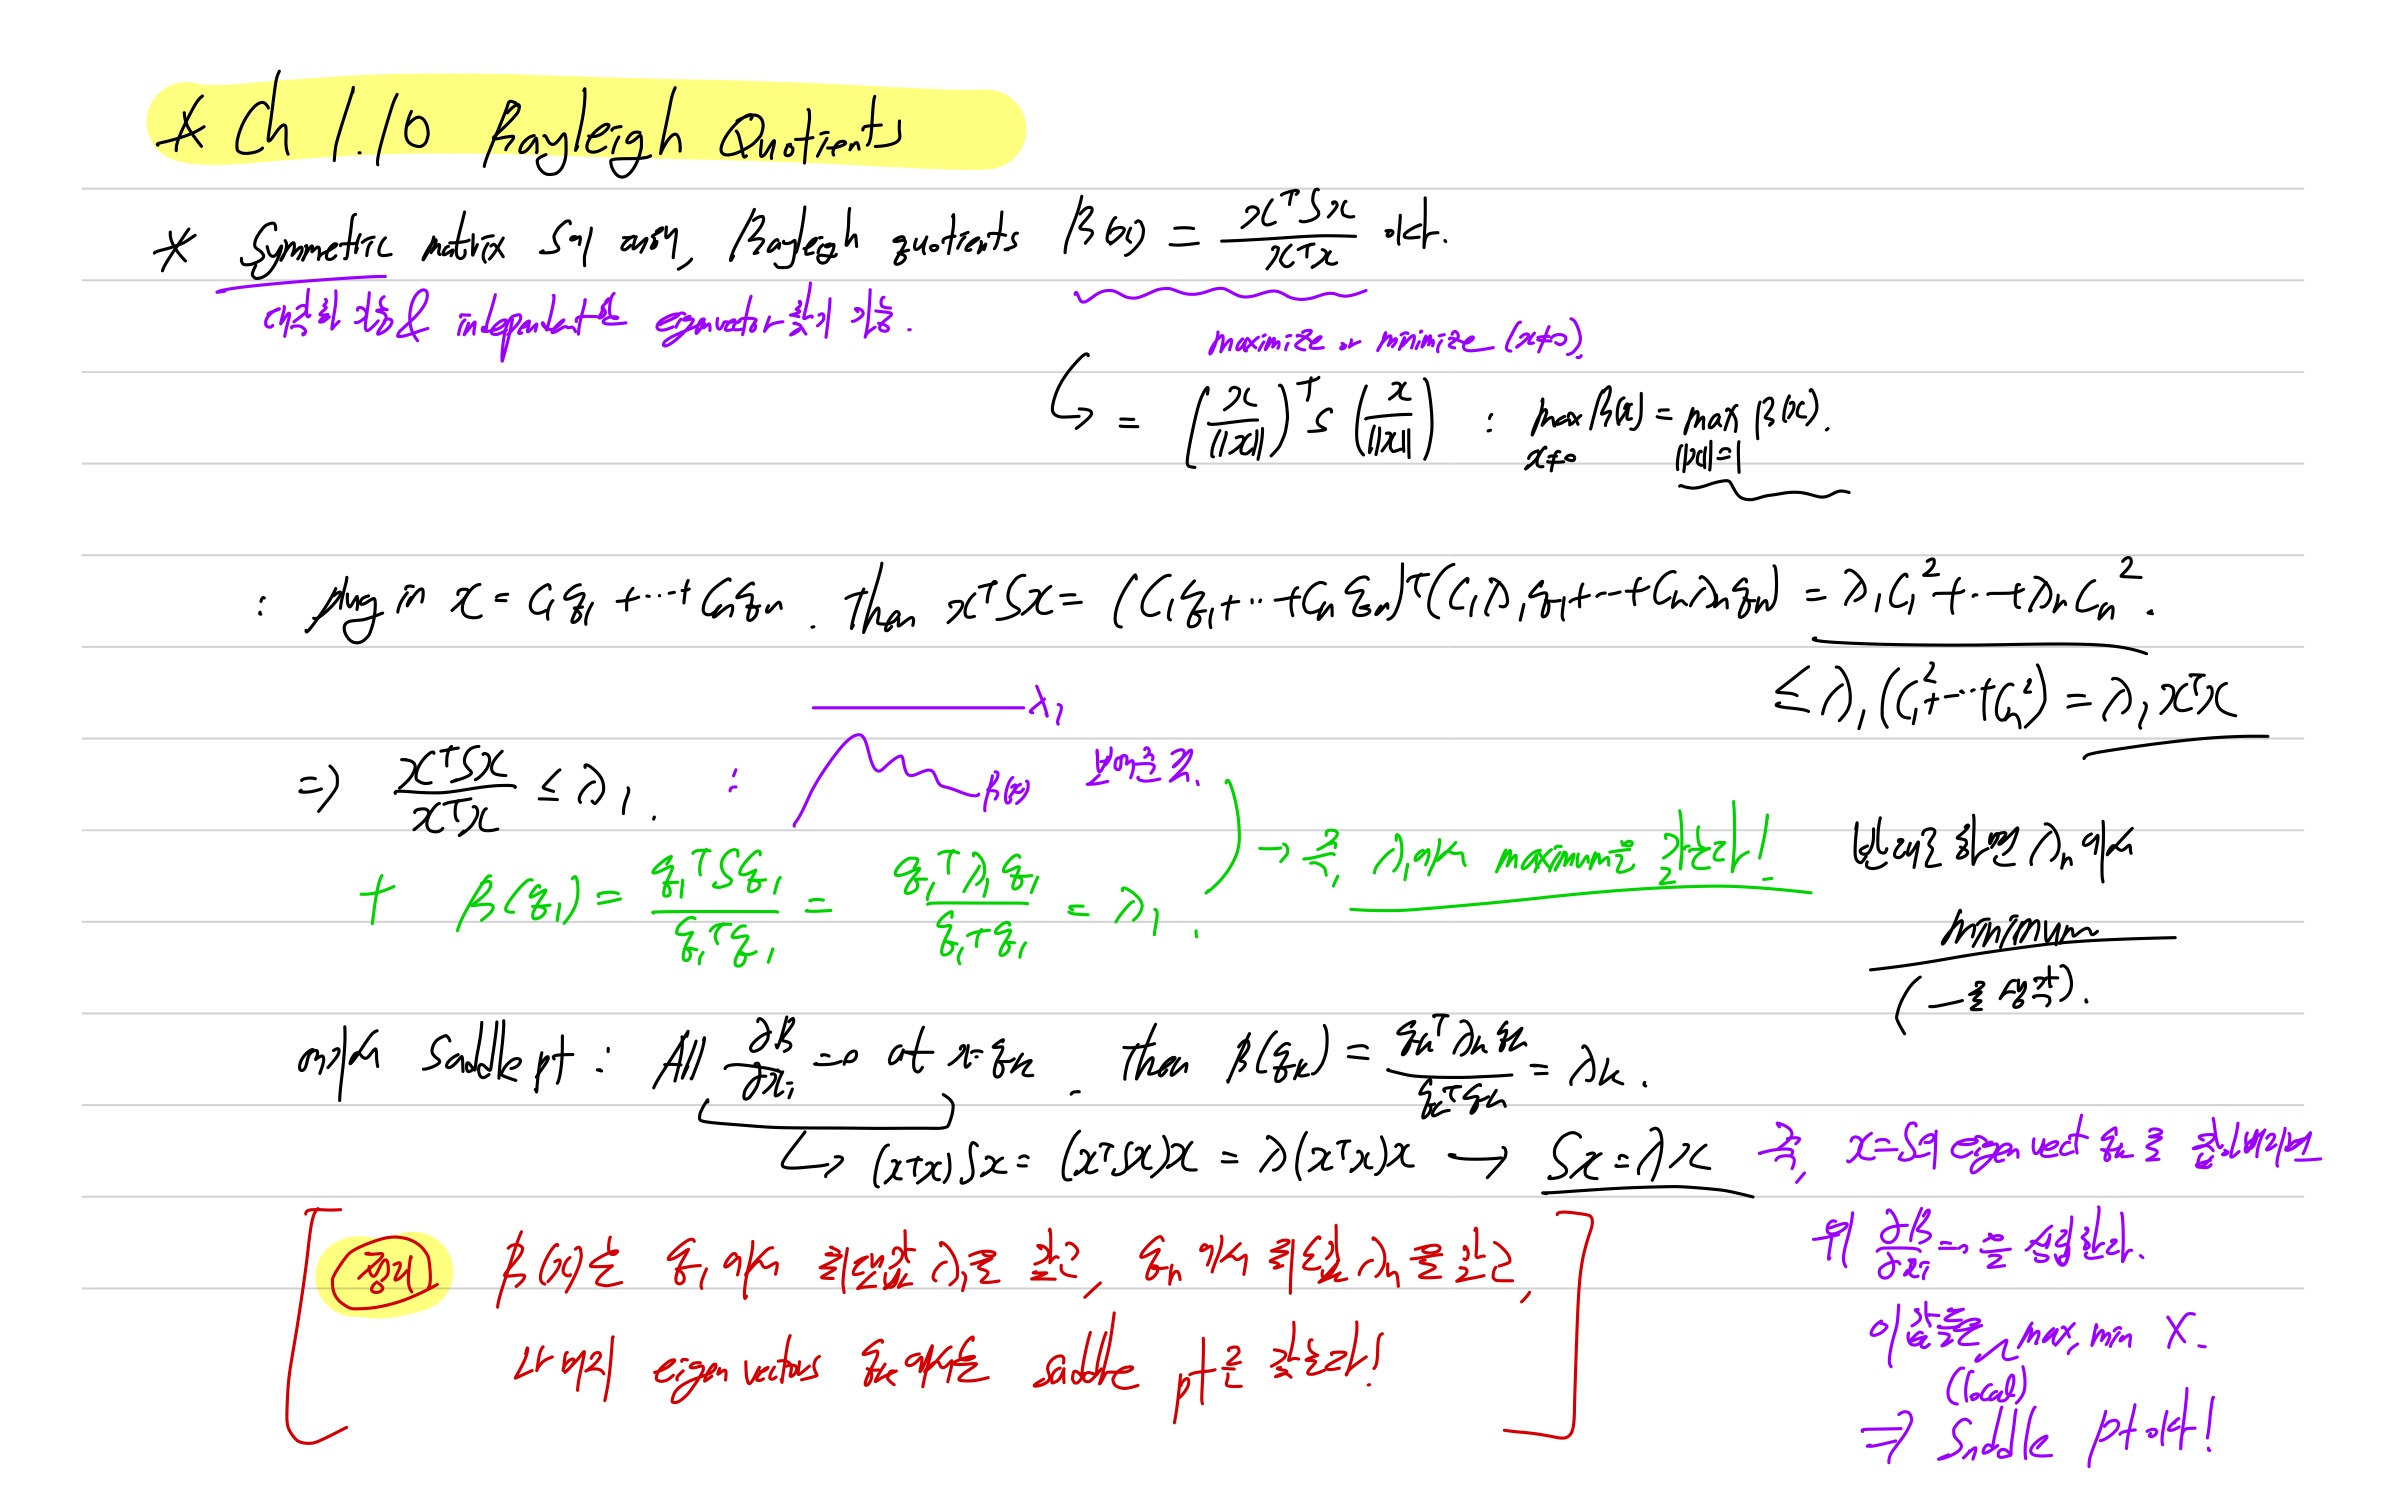 * Ch 1.10 Rayleigh Quotients
* Symmetric matrix S에 대해, Rayleigh quotients R(x) = xᵀSx / xᵀx 이다.
대각화 가능 & independent한 eigenvector 찾기 가능.
maximize or minimize (x≠0).
↳ = (x/||x||)ᵀ S (x/||x||) : max_{x≠0} R(x) = max_{||x||=1} R(x).
: plug in x = C₁q₁ + ⋯ + Cₙqₙ. Then xᵀSx = (C₁q₁ + ⋯ + Cₙqₙ)ᵀ(C₁λ₁q₁ + ⋯ + Cₙλₙqₙ) = λ₁C₁² + ⋯ + λₙCₙ².
≤ λ₁(C₁² + ⋯ + Cₙ²) = λ₁xᵀx
λ₁
⇒ xᵀSx / xᵀx ≤ λ₁. : R(x)
+ R(q₁) = q₁ᵀSq₁ / q₁ᵀq₁ = q₁ᵀλ₁q₁ / q₁ᵀq₁ = λ₁.
→ 즉, λ₁에서 maximum을 갖는다!
반대로 하면 λₙ에서
minimum
(−를 생각).
여기서 Saddle pt : All ∂R/∂xᵢ = 0 at x = qₖ. Then R(qₖ) = qₖᵀλₖqₖ / qₖᵀqₖ = λₖ.
↳ (xᵀx)Sx = (xᵀSx)x = λ(xᵀx)x → Sx = λx
즉, x = S의 eigen vect qₖ를 집어넣으면
위 ∂R/∂xᵢ = 0을 성립한다.
max, min X.
(local)
⇒ Saddle pt이다!
정리 R(x)는 q₁에서 최댓값 λ₁을 갖고, qₙ에서 최솟값 λₙ을 갖고,
나머지 eigen vectors qₖ에서는 saddle pt를 갖는다!